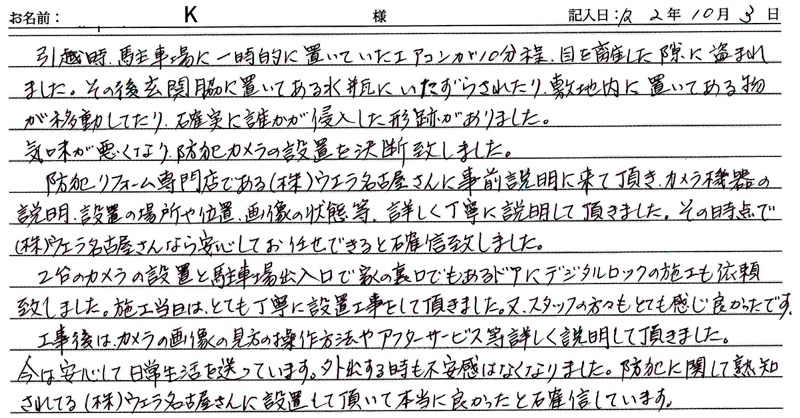 お名前： K 様 記入日：R 2 年 10 月 3 日
引越時、駐車場に一時的に置いていたエアコンが10分程、目を離した隙に盗まれ
ました。その後玄関脇に置いてある水瓶にいたずらされたり、敷地内に置いてある物
が移動してたり、確実に誰かが侵入した形跡がありました。
気味が悪くなり、防犯カメラの設置を決断致しました。
防犯リフォーム専門店である(株)ウエラ名古屋さんに事前説明に来て頂き、カメラ機器の
説明、設置の場所や位置、画像の状態等、詳しく丁寧に説明して頂きました。その時点で
(株)ウエラ名古屋さんなら安心してお任せできると確信致しました。
2台のカメラの設置と駐車場出入口で家の裏口でもあるドアにデジタルロックの施工も依頼
致しました。施工当日は、とても丁寧に設置工事をして頂きました。又、スタッフの方々もとても感じ良かったです。
工事後は、カメラの画像の見方の操作方法やアフターサービス等詳しく説明して頂きました。
今は安心して日常生活を送っています。外出する時も不安感はなくなりました。防犯に関して熟知
されてる(株)ウエラ名古屋さんに設置して頂いて本当に良かったと確信しています。